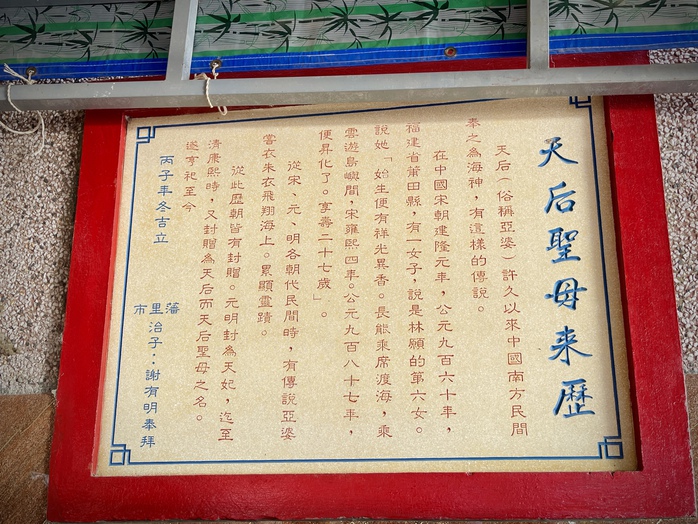 天后聖母来歷
天后（俗稱亞婆）許久以來中國南方民間
奉之為海神，有這樣的傳說。
在中國宋朝建隆元年，公元九百六十年，
福建省莆田縣，有一女子，說是林願的第六女。
說她「始生便有祥光異香。長能乘席渡海，乘
雲遊島嶼間，宋雍熙四年。公元九百八十七年，
便昇化了。享壽二十七歲」。
從宋、元、明各朝代民間時，有傳說亞婆
嘗衣朱衣飛翔海上。累顯靈蹟。
從此歷朝皆有封贈。元明封為天妃，迄至
清康熙時，又封贈為天后而天后聖母之名。
遂享祀至今
丙子年冬吉立
藩
里治子：謝有明奉拜
市